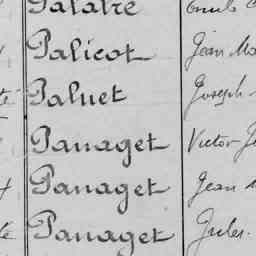 Palatre
Palicot Jean Ma
té Paluet Joseph
Panaget Victor J
Panaget Jean M
Panaget Jules